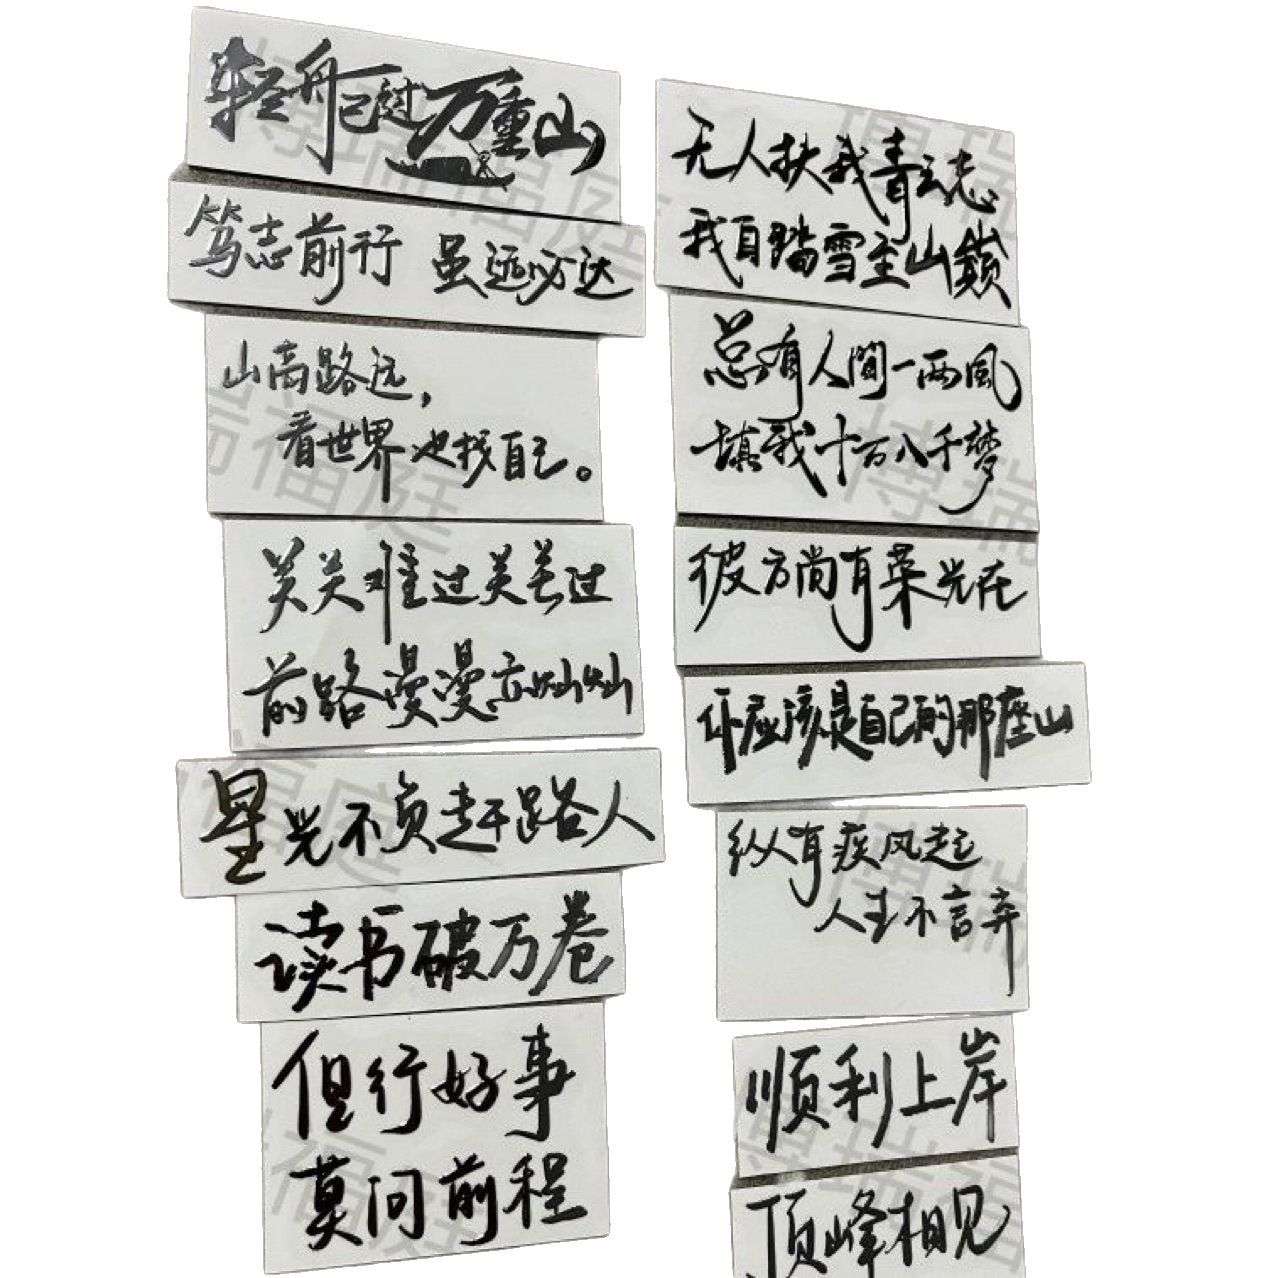 轻舟已过万重山
笃志前行 虽远必达
山高路远，
看世界也找自己。
关关难过关关过
前路漫漫亦灿灿
星光不负赶路人
读书破万卷
但行好事
莫问前程
无人扶我青云志
我自踏雪至山巅
总有人間一两風
填我十万八千梦
彼方尚有荣光在
你应该是自己的那座山
纵有疾风起
人生不言弃
顺利上岸
顶峰相见
博瑞福庭